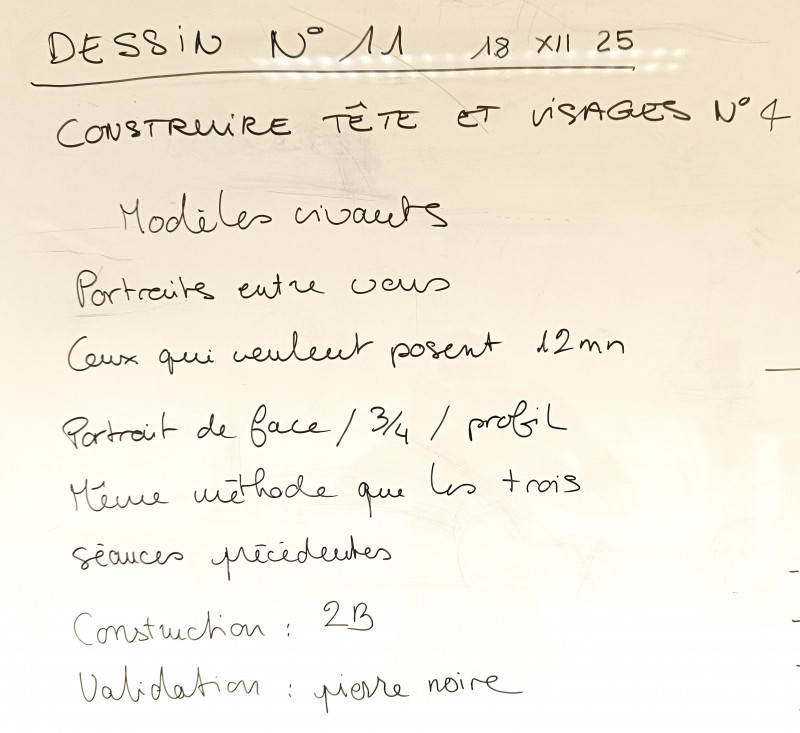 DESSIN N° 11 18 XII 25
CONSTRUIRE TÊTE ET VISAGES N° 4
Modèles vivants
Portraits entre vous
Ceux qui veulent posent 12mn
Portrait de face / 3/4 / profil
Même méthode que les trois
séances précédentes
Construction : 2B
Validation : pierre noire